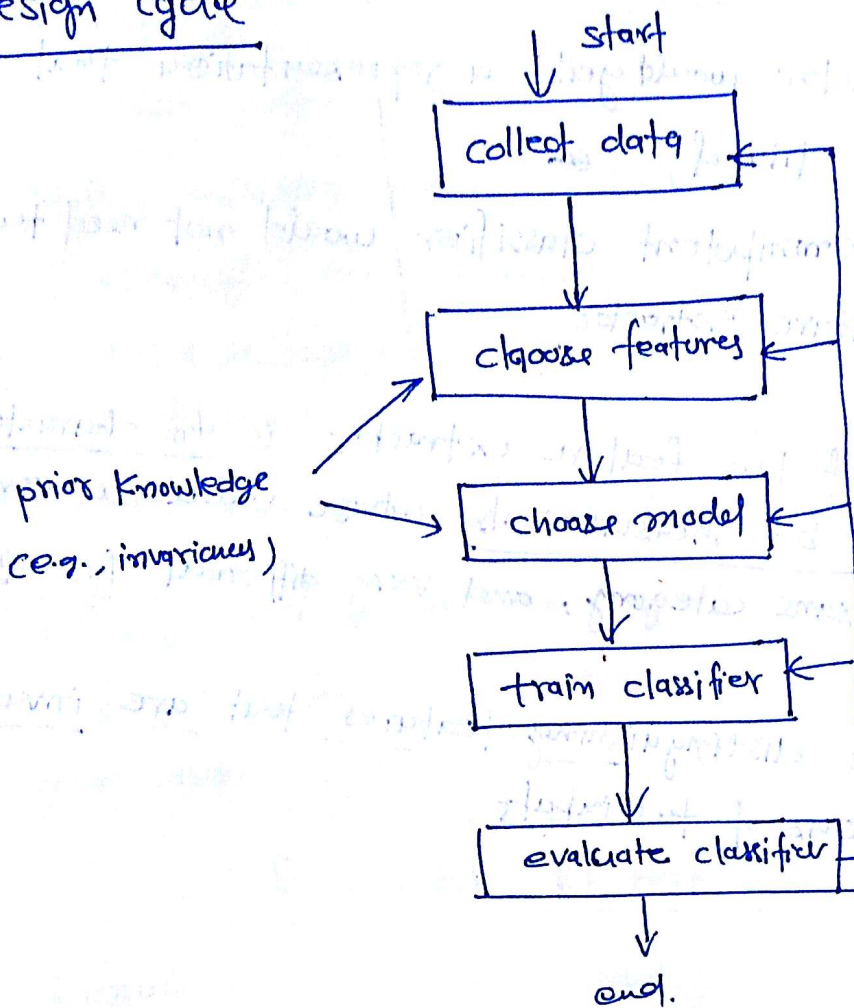 esign cycle
start
collect data
choose features
prior Knowledge
(e.g., invariances)
choose model
train classifier
evaluate classifier
end.